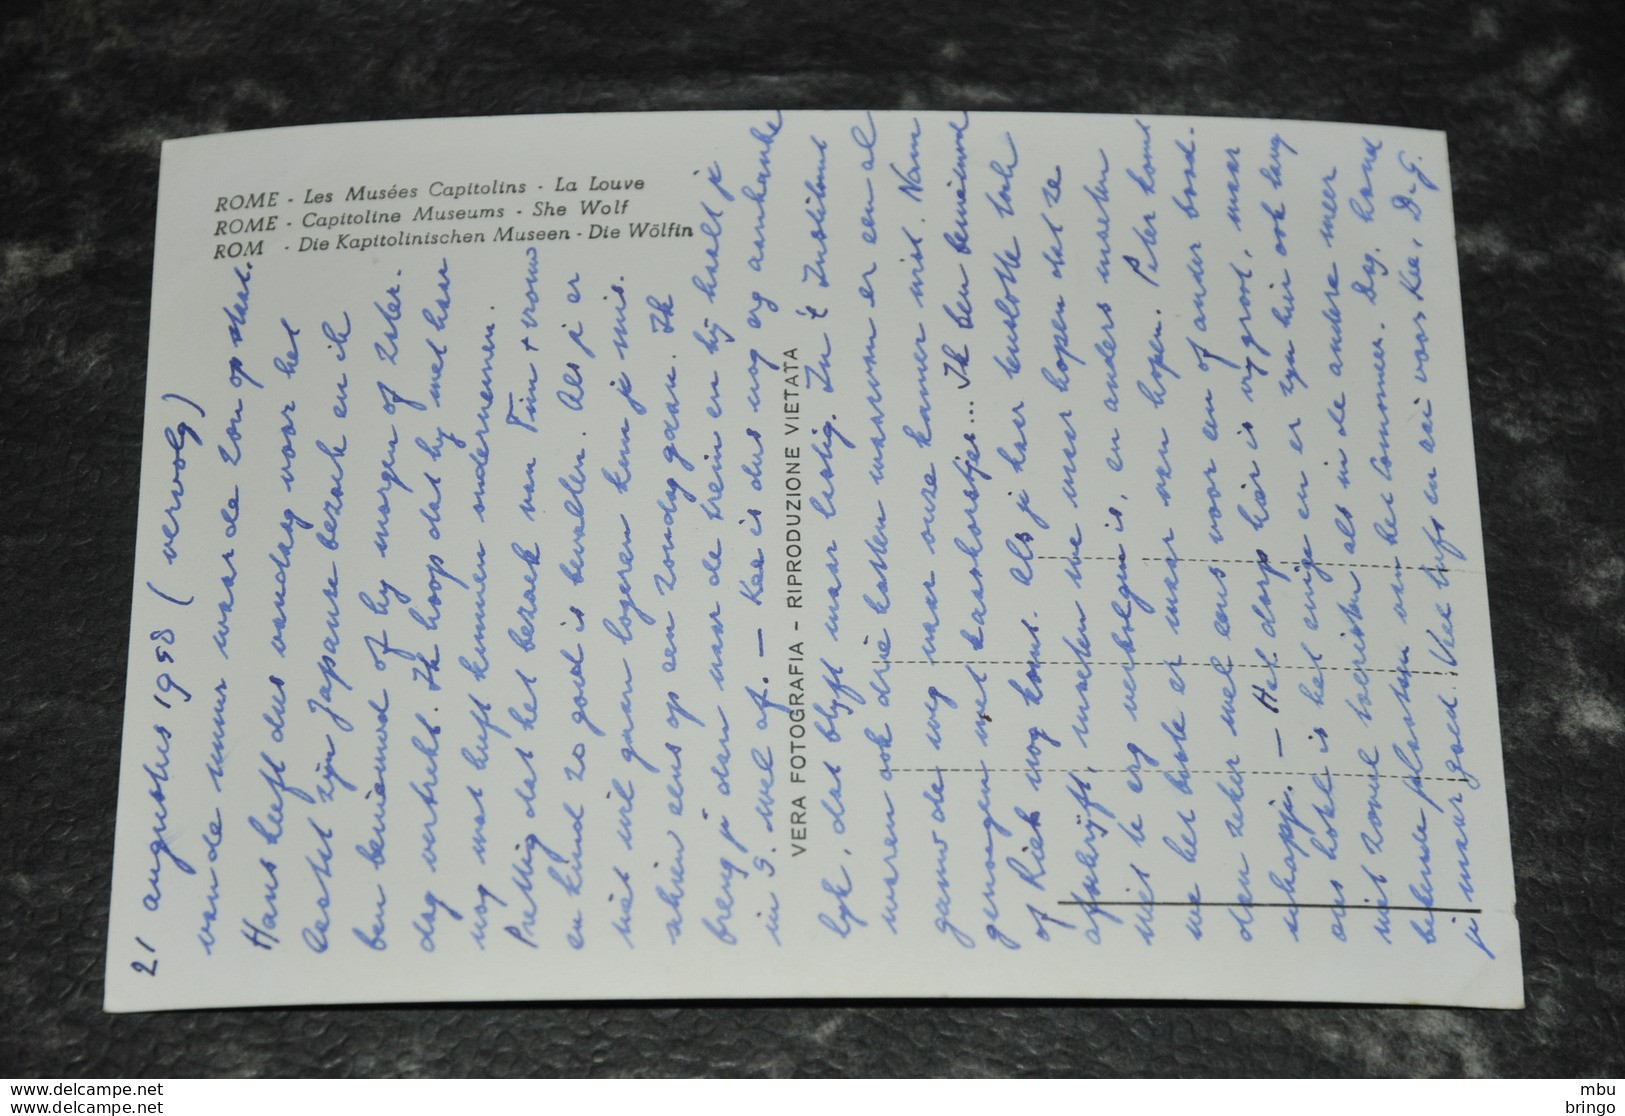 ROME - Les Musées Capitolins - La Louve
ROME - Capitoline Museums - She Wolf
ROM - Die Kapitolinischen Museen - Die Wölfin
21 augustus 1958 (vervolg)
van de waar de zon op staat.
Hans heeft dus vandaag voor het
laatst zijn Japanse bezoek en ik
ben benieuwd of hij morgen of zater-
dag vertrekt. Ik hoop dat hij met haar
nog wat heeft kunnen ondernemen.
Prettig dat het bezoek van Tim + vrouw
en kind zo goed is bevallen. Als je er
niet wil gaan logeren kun je mis-
schien eens op een zondag gaan. Ik
breng je dan naar de trein en hij haalt je
in S. wel af. — Kee is dus nog erg aanhanke
lijk, dat blijft maar lastig. In 't Instituut
waren ook drie katten waarvan er een al
gauw de weg naar onze kamer wist. Nam
genoegen met kaaskorstjes... Ik ben benieuwd
of Riek nog komt. Als je haar tenslotte toch
afschrijft, moeten we maar hopen dat ze
niet te erg verbolgen is, en anders moeten
we het beste er maar van hopen. Peter komt
den zeker wel eens voor een of ander bood-
schapje. — Het dorp hier is vrij groot, maar
ons hotel is het enige en er zijn hier ook lang
niet zoveel toeristen als in de andere meer
bekende plaatsen aan het Commeer. Dag. houd
je maar goed. Veel liefs en aai voor Kee, D. G.
VERA FOTOGRAFIA - RIPRODUZIONE VIETATA
www.delcampe.net
www.delcampe.net
mbu
bringo